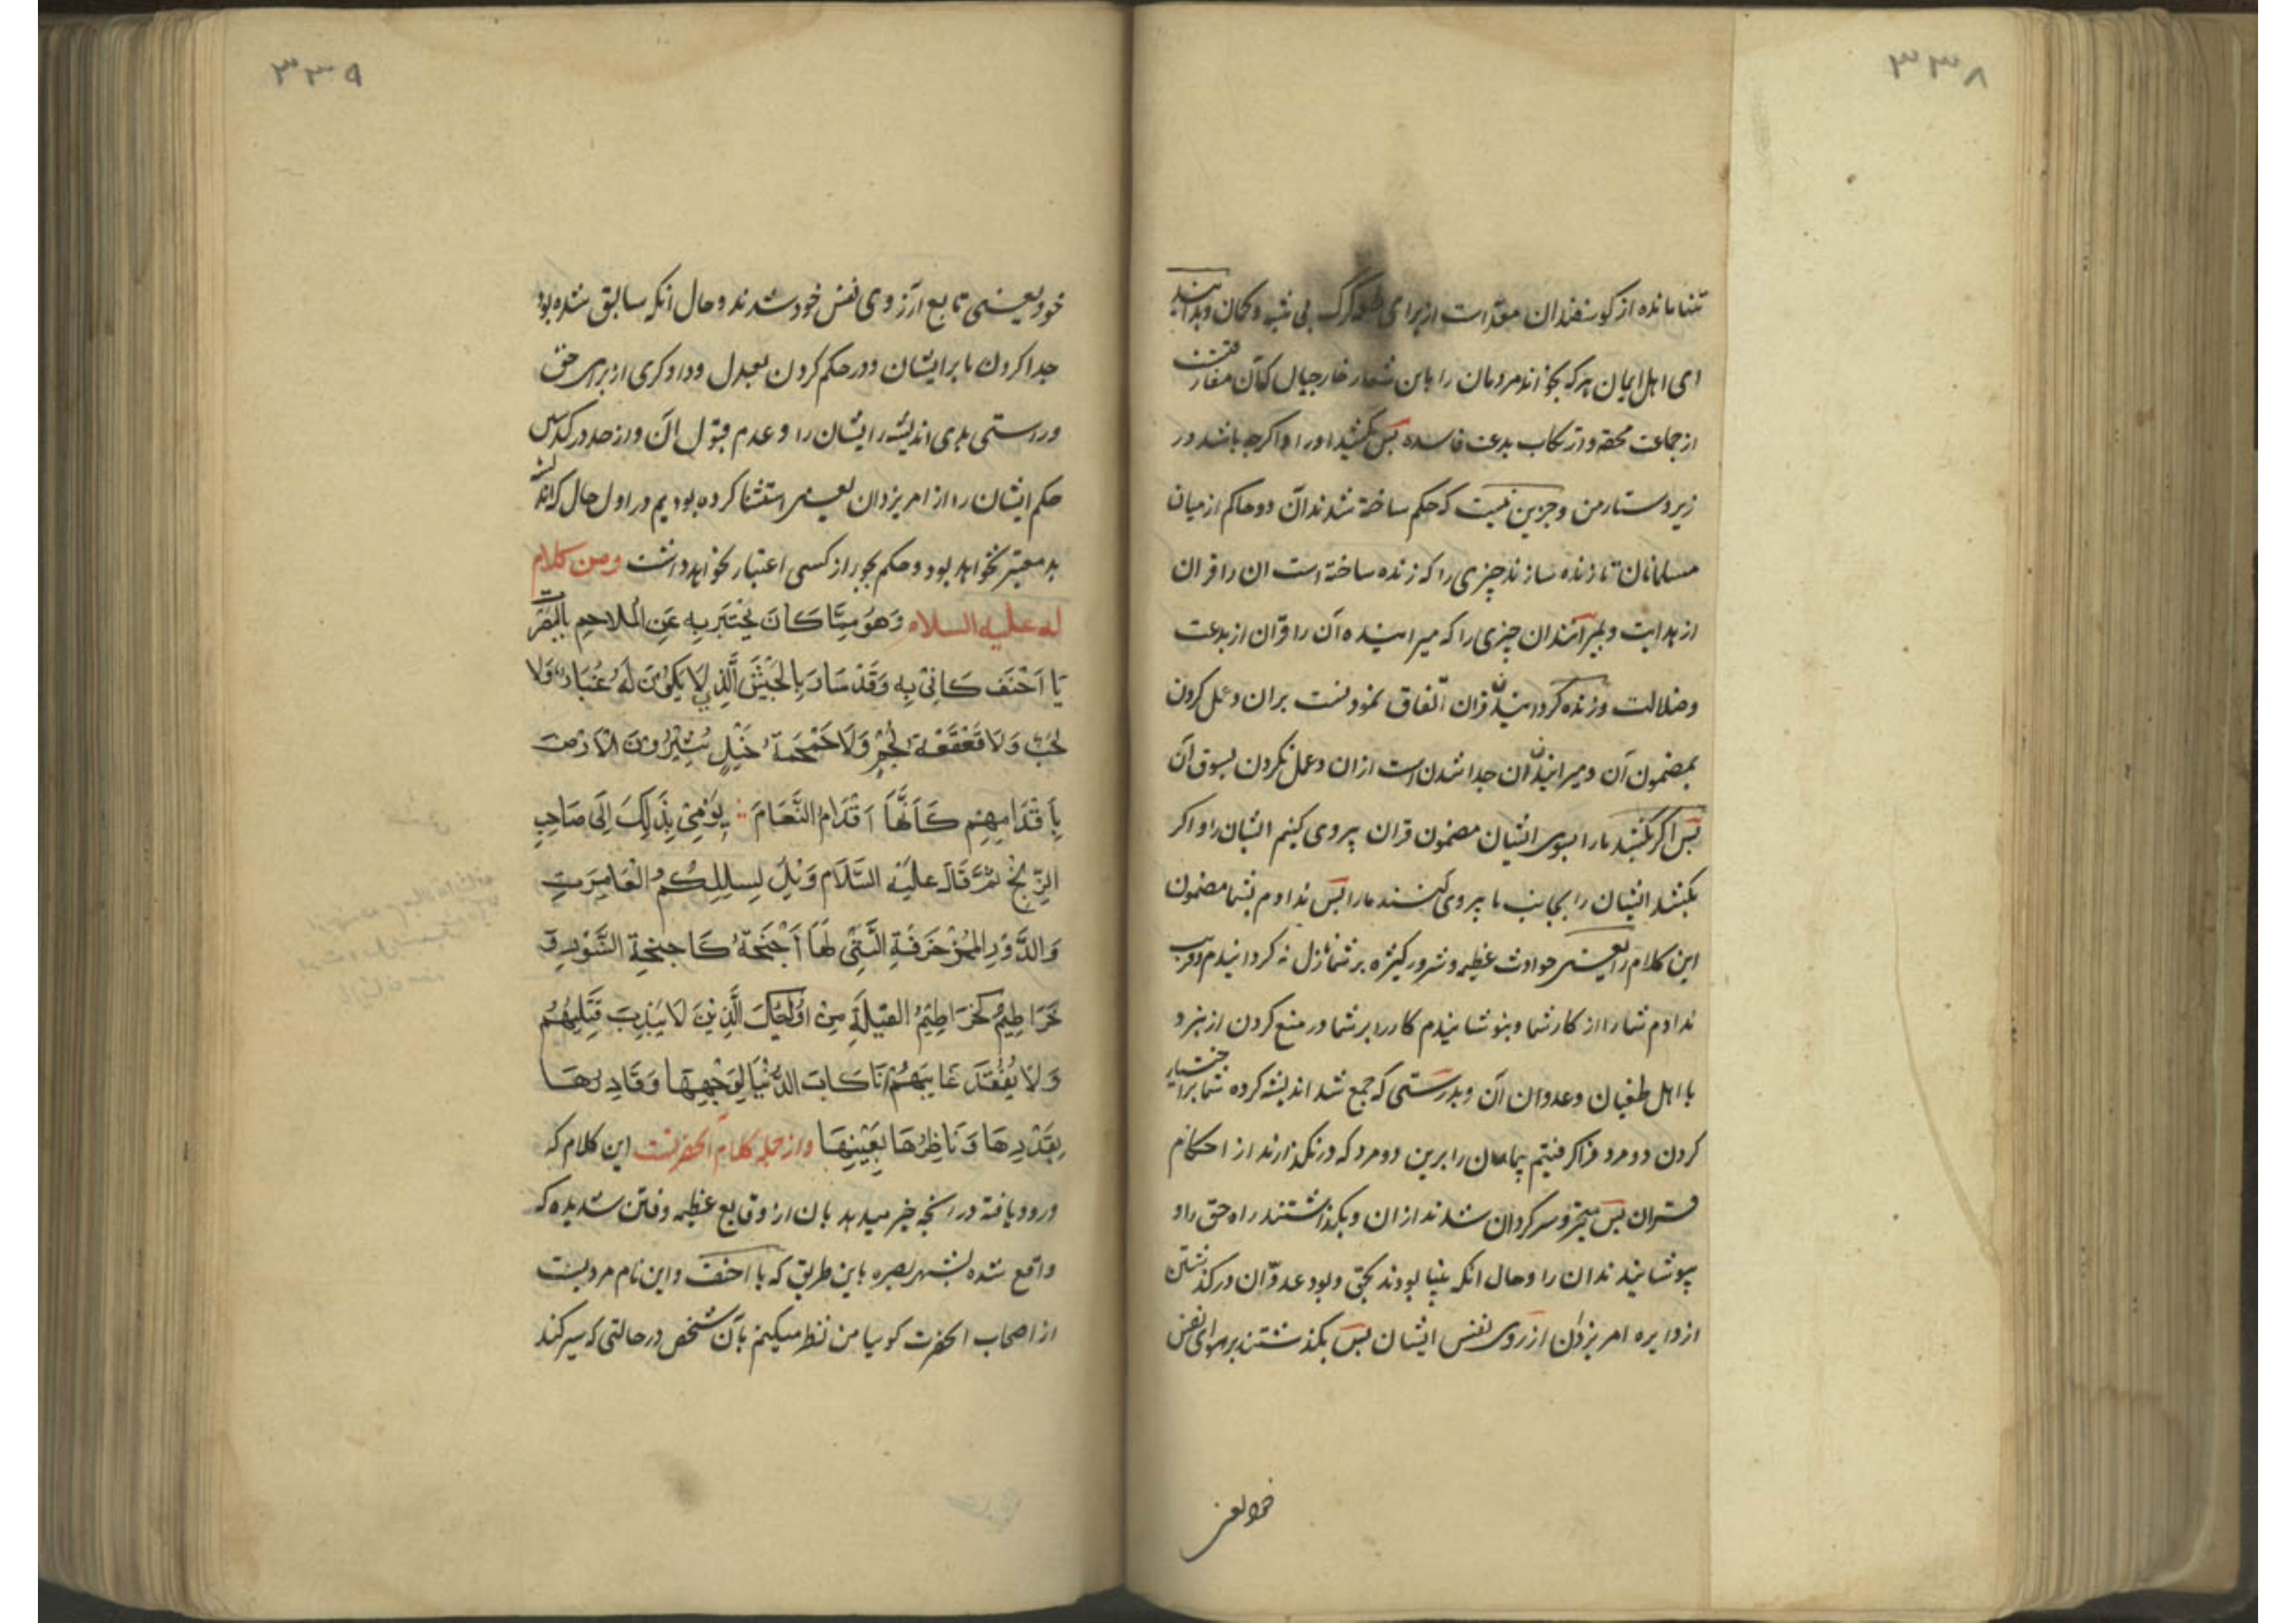 ۳۳۸
تنها مانده از کوسفندان مقدّ است از برای کرک بی شبه و کمان و بدانید
ای اهل ایمان هرکه بخواند مردمان را باین شعار خارجیان کآن مفارقتست
از جماعت محقه و ارتکاب بدعت فاسده پس بکشید او را و اکرچه باشد در
زیر دستار من و جزین نیست که حکم ساخته شدند آن دو حاکم از میان
مسلمانان تا زنده سازند چیزی را که زنده ساخته است ان را قران
از هدایت و بمیرانند ان چیزی را که میرانیده آن را قرآن از بدعت
وضلالت و زنده کردانیدن قران اتفاق نمودنست بران و عمل کردن
بمضمون آن و میرانیدن ان جدا شدنست ازان و عمل نکردن بسوق آن
پس اکر بکشند ما را بسوی ایشان مضمون قران پیروی کنیم ایشان را و اکر
بکشد ایشان را بجانب ما پیروی کنند ما را پس نداوم بشما مضمون
این کلام را یعنی حوادث عظیمه و شرور کثیره بر شما نازل نه کردانیدم و فریب
ندادم شما را از کار شما و بنوشانیدم کار را بر شما در منع کردن از نبرد
با اهل طغیان و عدوان آن و بدرستی که جمع شد اندیشه کرده شما بر اختیار
کردن دو مرد فرا کرفتیم پیمان را برین دو مرد که درنگذارند از احکام
قران پس متحیر و سرکردان شدند ازان و بگذاشتند راه حق را و
پوشانیدند ان را و حال انکه بینا بودند بحق و بود عدوان درکذشتن
از دایره امر یزدان ارزوی نفس ایشان پس بکذشتند بر هوای نفس
خود یعنی
۳۳۹
خود یعنی تابع آرزوی نفس خود شدند و حال انکه سابق شده بود
جدا کردن ما بر ایشان و در حکم کردن بعدل و دادکری از برای حق
و راستی بدی اندیشه ایشان را و عدم قبول آن و از حد درکذشتن
حکم ایشان را از امر یزدان یعنی استثنا کرده بودیم در اول حال که اندیشه
بد معتبر نخواهد بود و حکم بجور از کسی اعتبار نخواهد داشت ومن کلام
له علیه السلام وَهُوَ مِمَّا كَانَ يُخْبَرُ بِهِ عَنِ الْمَلاحِمِ بِالْبَصْرَةِ
يَا اَحْنَفُ كَانّيْ بِهِ وَقَدْ سَارَ بِالْجَيْشِ الَّذِي لَا يَكُوْنُ لَهُ غُبَارٌ وَلَا
لَجَبٌ وَلَا قَعْقَعَةُ لُجُمٍ وَلَا حَمْحَمَةُ خَيْلٍ يُثِيْرُوْنَ الْاَرْضَ
بِاَقْدَامِهِمْ كَاَنَّهَا اَقْدَامُ النَّعَامَ يُوْمِيْ بِذَلِكَ اِلَى صَاحِبِ
الزِّنْجِ ثُمَّ قَالَ عَلَيْهِ السَّلَام وَيْلٌ لِسِكَكِكُمُ الْعَامِرَةِ
وَالدُّوْرِ الْمُزَخْرَفَةِ الَّتِيْ لَهَا اَجْنِحَةٌ كَاجنحةِ النُّسُوْرِ وَ
خَرَاطِيْمُ كَخَرَاطِيْمُ الْفِيَلَةِ مِنْ اُولٰئِكَ الَّذِيْنَ لَا يُنْدَبُ قَتِيْلُهُمْ
وَلَا يُفْقَدُ غَايِبُهُمْ اَنَا كَابُّ الدُّنْيَا لِوَجْهِهَا وَقَادِرُهَا
بِقَدْرِهَا وَنَاظِرُهَا بِعَيْنِهَا واز جمله کلام انحضرتست این کلام که
ورود یافته در انچه خبر میدهد بان از وقایع عظیمه و فتن شدیده که
واقع شده بشهر بصره باین طریق که یا احنف و این نام مردیست
از اصحاب انحضرت کویا من نظر میکنم بآن شخص در حالتی که سیر کند